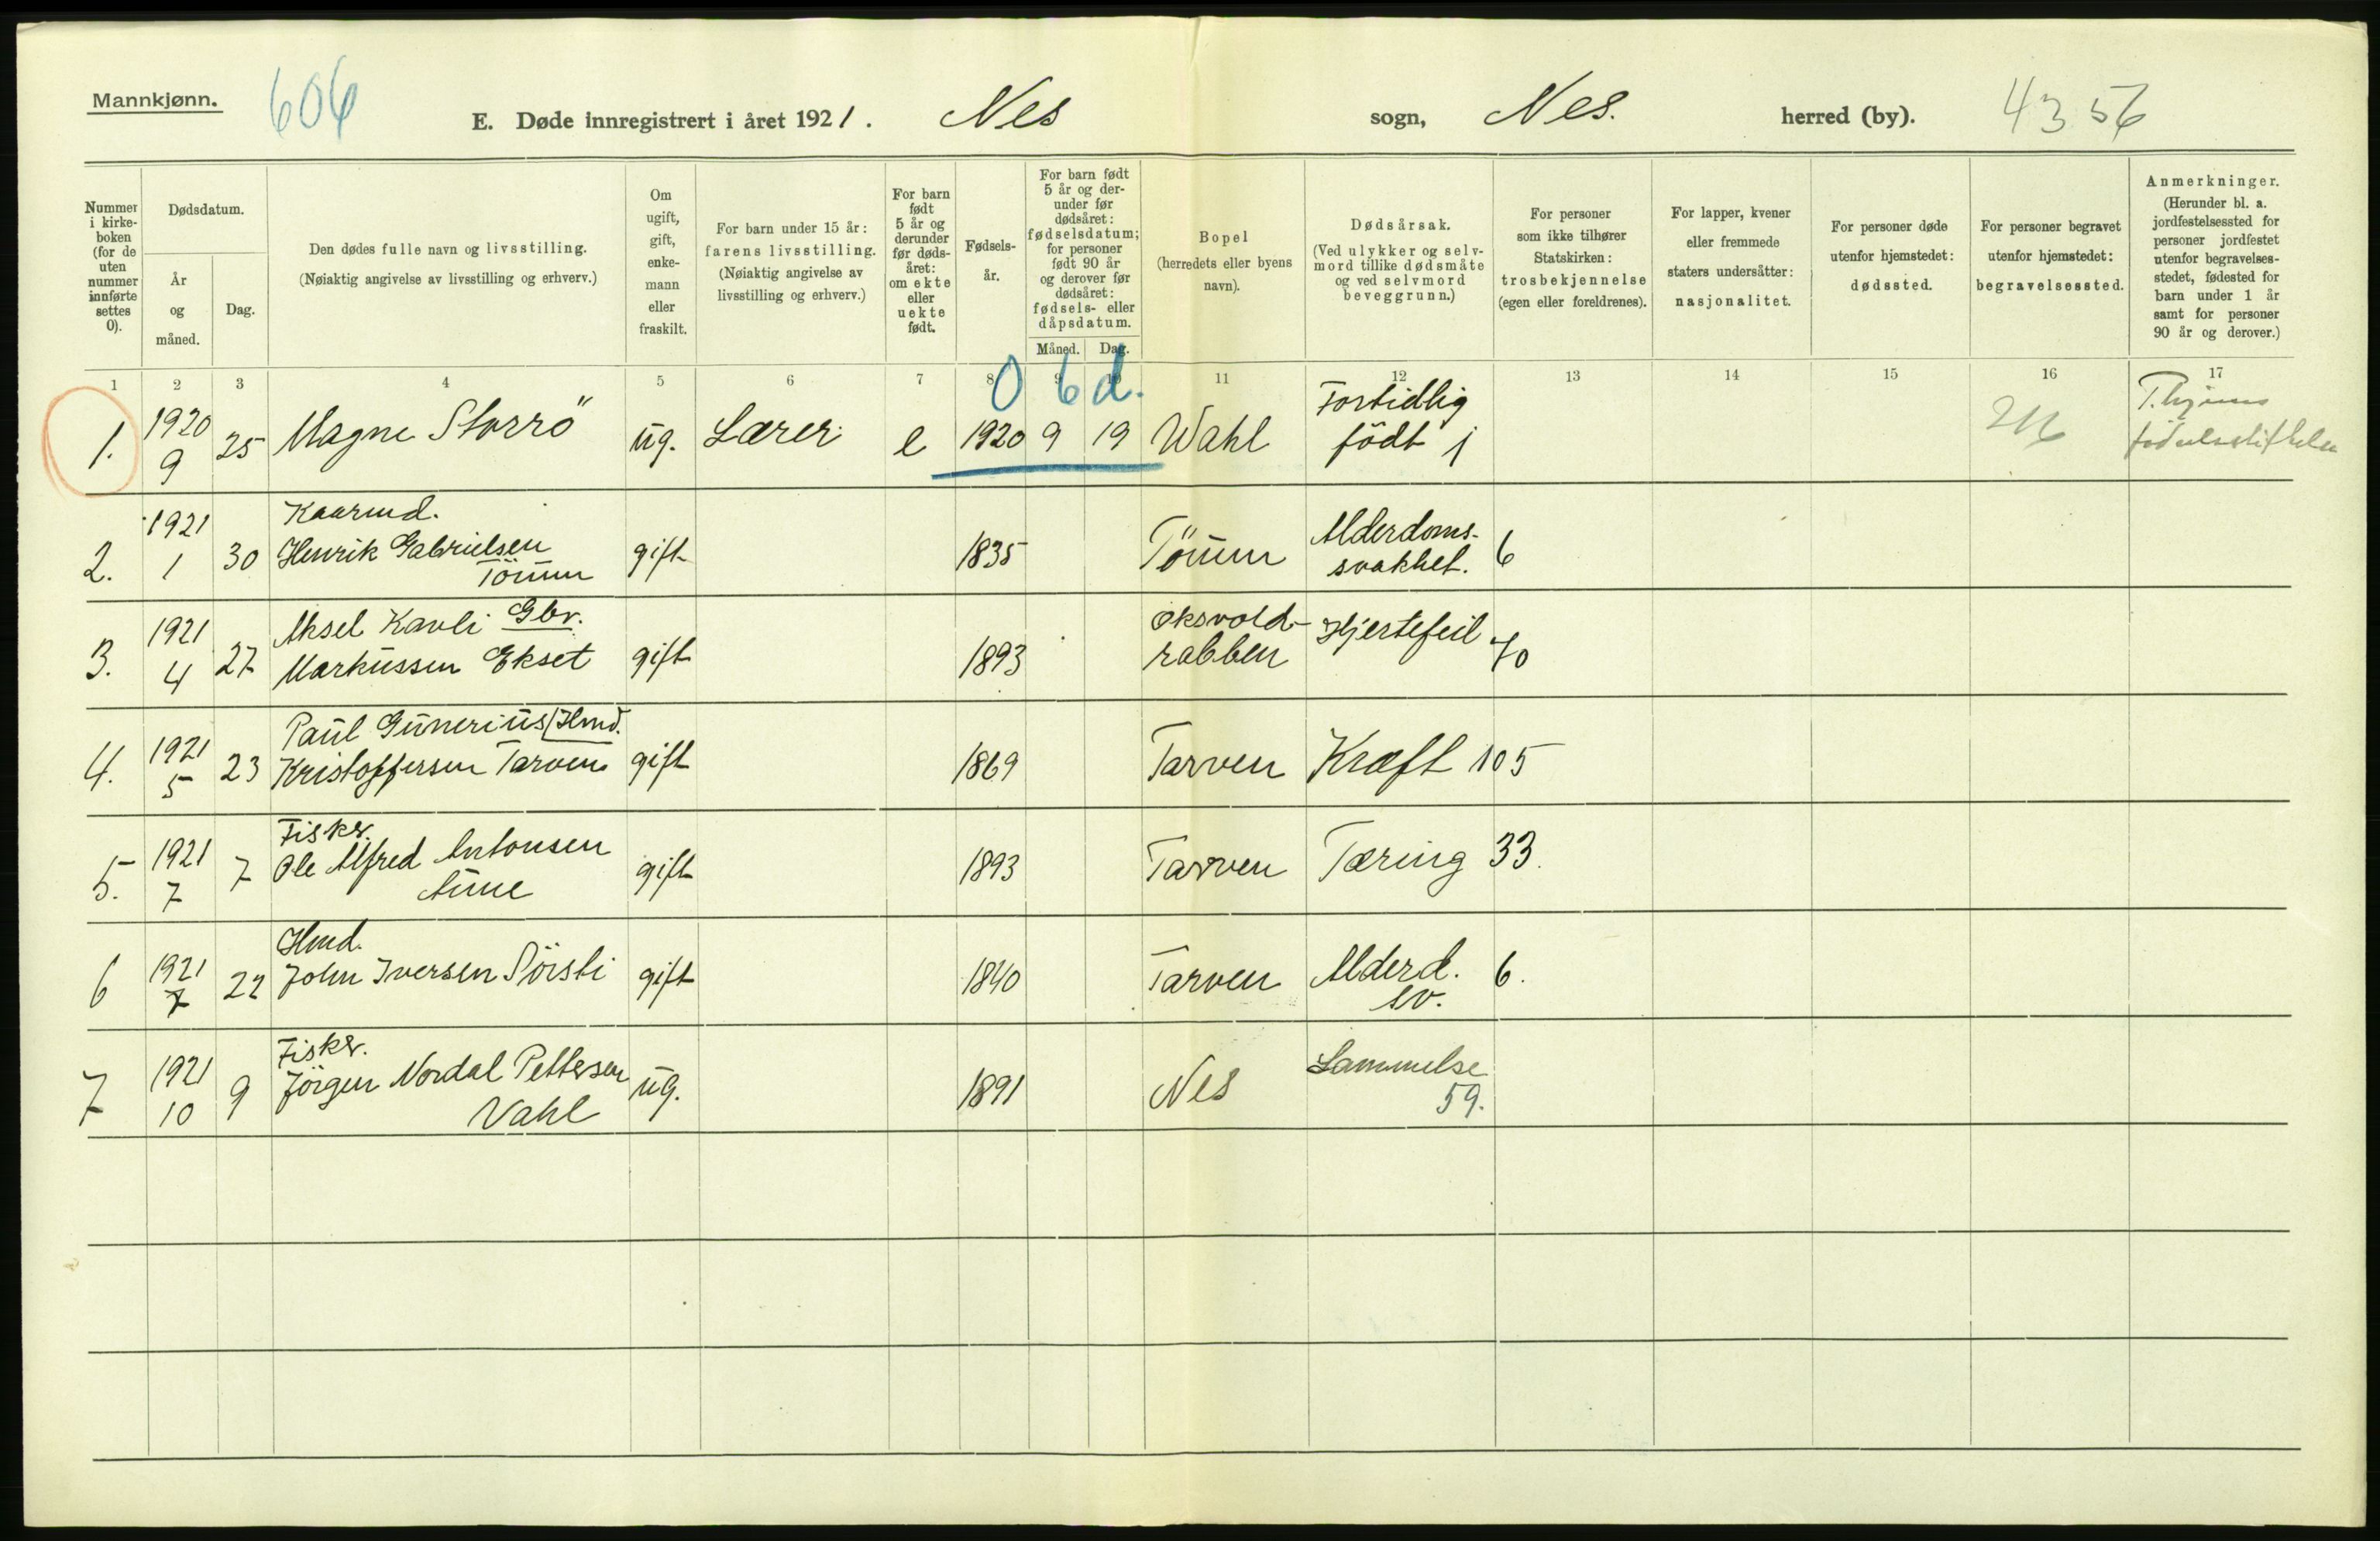 Mannkjønn.
606
E. Døde innregistrert i året 1921. Nes sogn, Nes. herred (by). 4356
Nummer i kirke-boken (for de uten nummer innførte settes 0).
Dødsdatum.
År og måned.
Dag.
Den dødes fulle navn og livsstilling.
(Nøiaktig angivelse av livsstilling og erhverv.)
Om ugift, gift, enke-mann eller fraskilt.
For barn under 15 år: farens livsstilling.
(Nøiaktig angivelse av livsstilling og erhverv.)
For barn født 5 år og derunder før døds-året: om ekte eller uekte født.
Fødsels-år.
For barn født 5 år og der-under før dødsåret: fødselsdatum; for personer født 90 år og derover før dødsåret: fødsels- eller dåpsdatum.
Måned. Dag.
Bopel (herredets eller byens navn).
Dødsårsak.
(Ved ulykker og selv-mord tillike dødsmåte og ved selvmord beveggrunn.)
For personer som ikke tilhører Statskirken: trosbekjennelse (egen eller foreldrenes).
For lapper, kvener eller fremmede staters undersåtter: nasjonalitet.
For personer døde utenfor hjemstedet: dødssted.
For personer begravet utenfor hjemstedet: begravelsessted.
Anmerkninger.
(Herunder bl. a. jordfestelsessted for personer jordfestet utenfor begravelses-stedet, fødested for barn under 1 år samt for personer 90 år og derover.)
1 2 3 4 5 6 7 8 9 10 11 12 13 14 15 16 17
0 6 d.
1. 1920 9 25 Magne Storrö ug. Lærer e 1920 9 19 Wahl Fortidlig født 1 T.hjems fødselsstiftelse
2. 1921 1 30 Kaarmd. Henrik Gabrielsen gift 1835 Alderdoms-svakhet. 6
3. 1921 4 27 Aksel Kavli Gbr. Markussen Ekset gift 1893 Oksvold-rabben Hjertefeil 70
4. 1921 5 23 Paul Gunerius Hmd. Kristoffersen Tarven gift 1869 Tarven Kræft 105
5. 1921 7 7 Fisker. Ole Alfred Antonsen Aune gift 1893 Tarven Tæring 33.
6 1921 7 22 Hmd. John Iversen Söisti gift 1840 Tarven Alderd. sv. 6.
7 1921 10 9 Fisker. Jörgen Nordal Pettersen Vahl ug. 1891 Nes Lammelse 59.